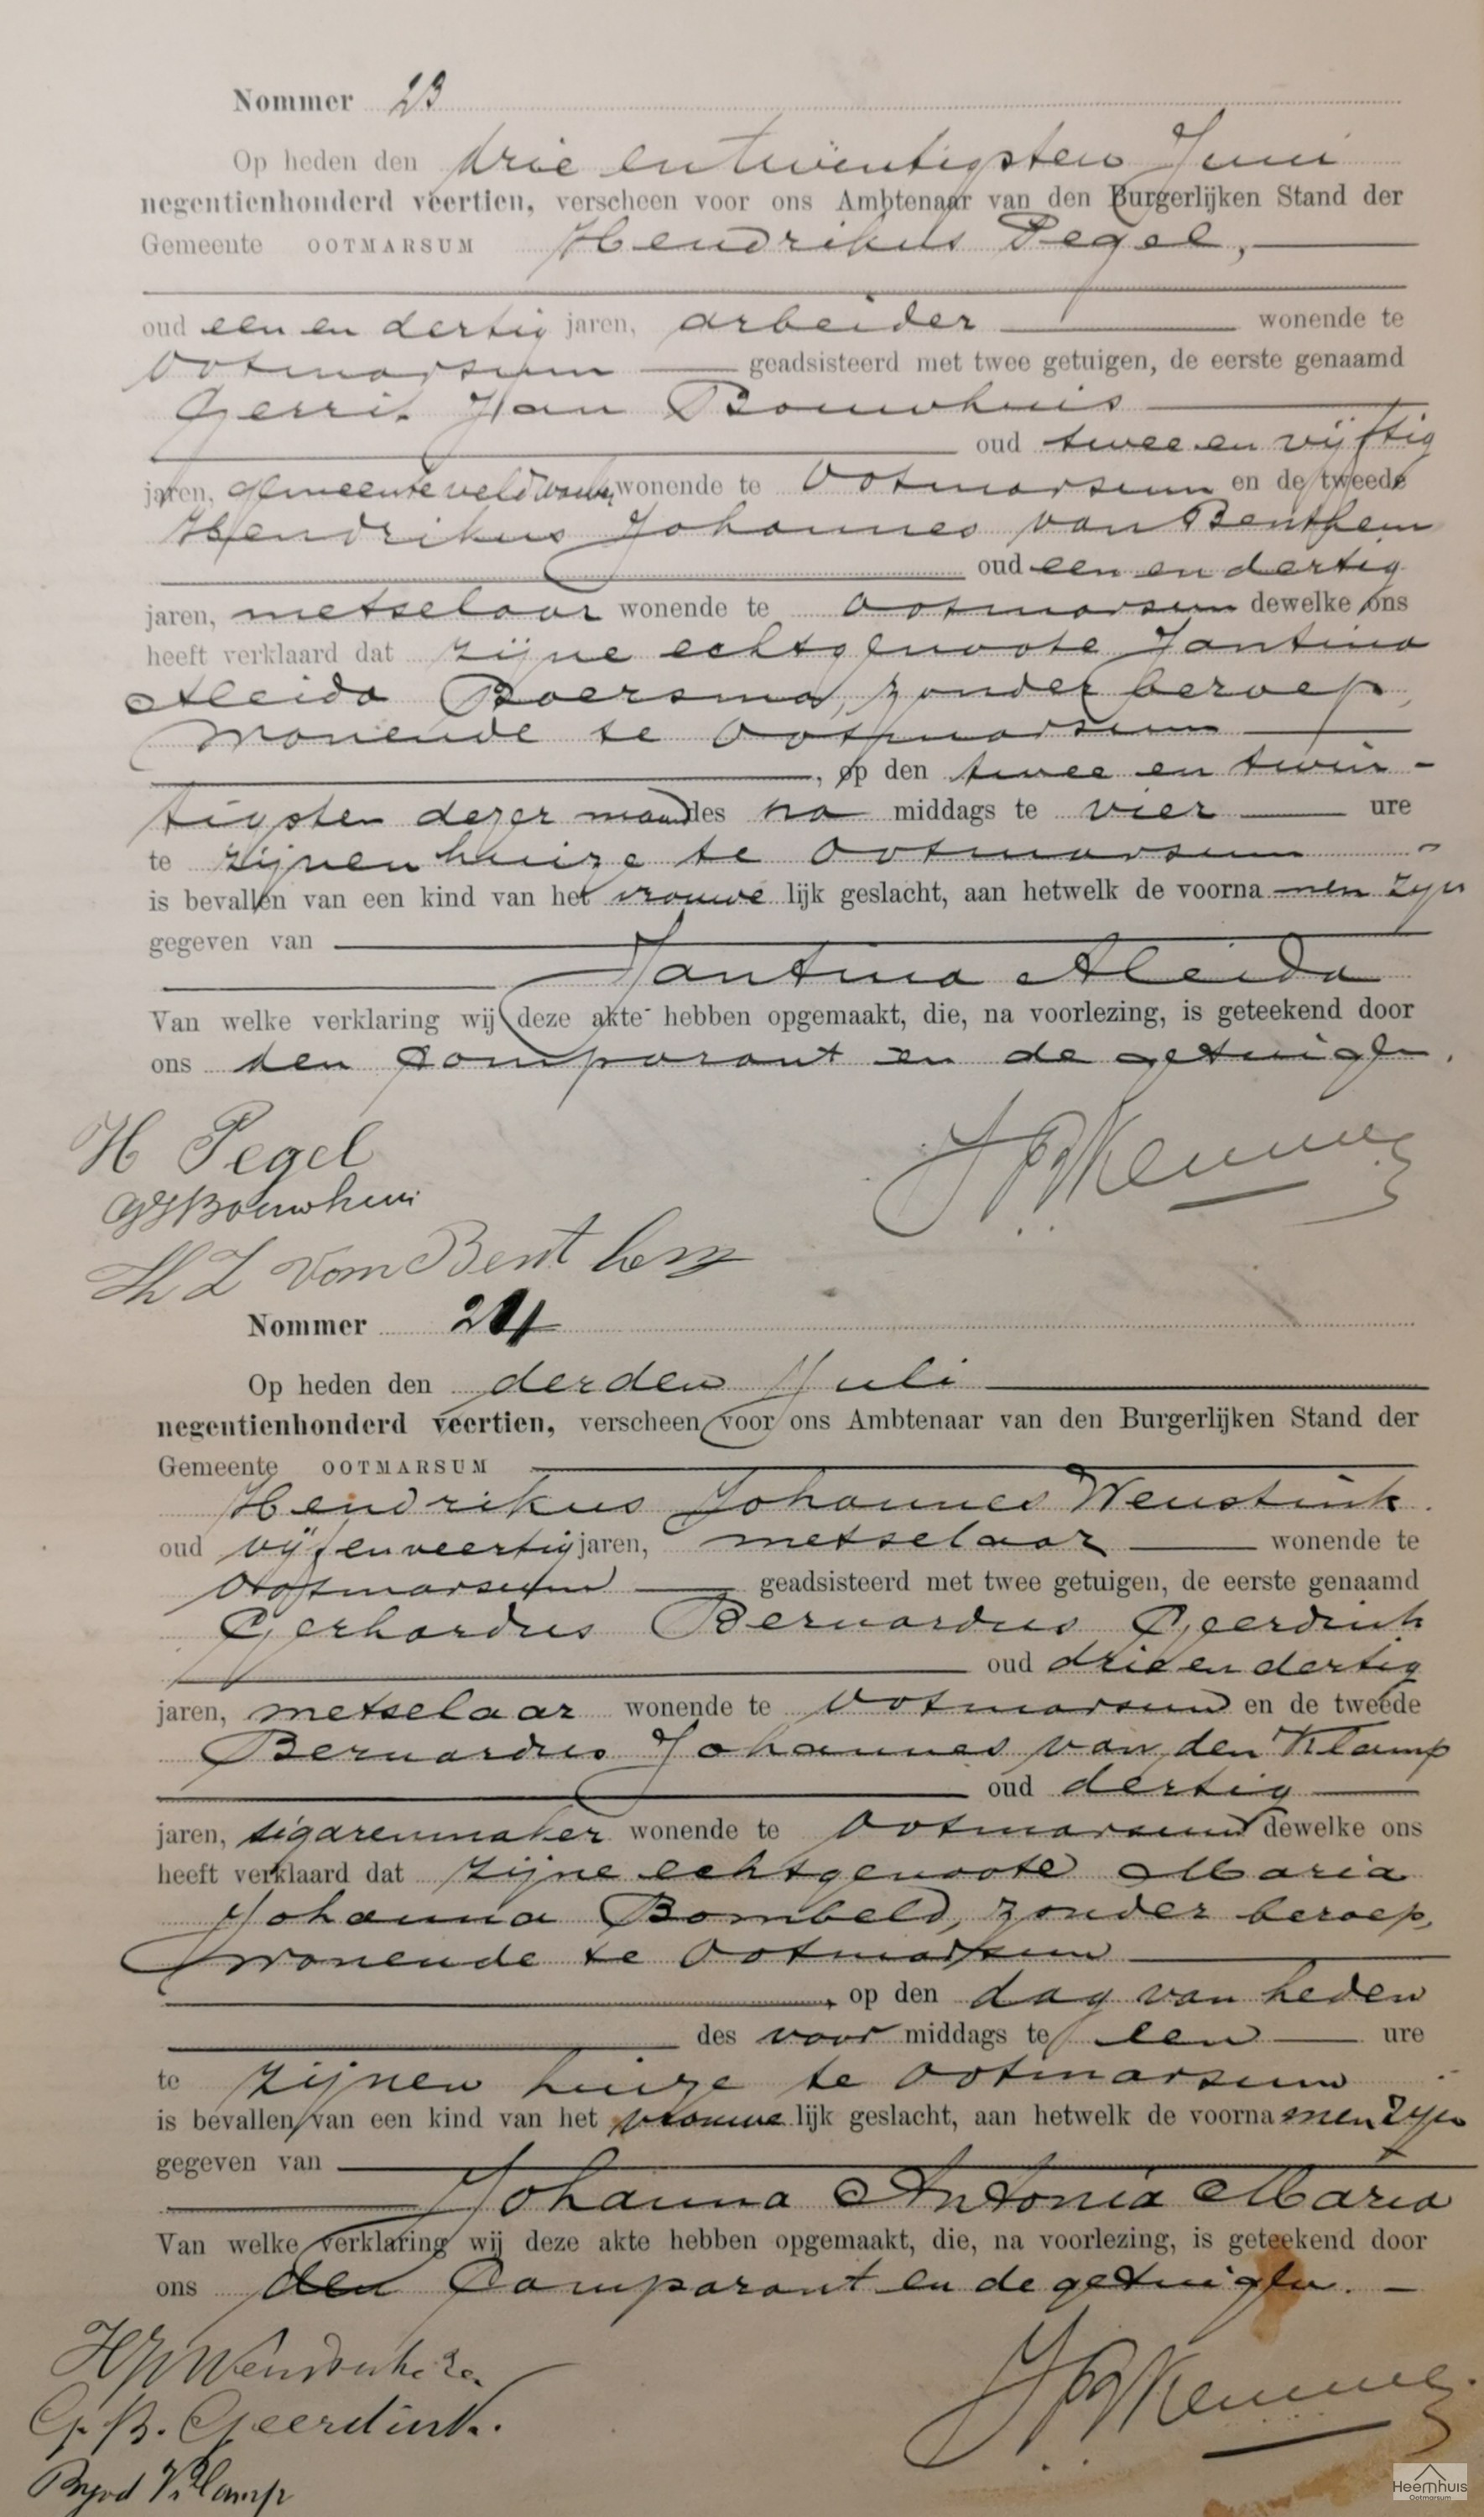 Nommer 23
Op heden den drie en twintigsten Juni
negentienhonderd veertien, verscheen voor ons Ambtenaar van den Burgerlijken Stand der
Gemeente OOTMARSUM Hendrikus Pegel,
oud een en dertig jaren, arbeider wonende te
Ootmarsum geadsisteerd met twee getuigen, de eerste genaamd
Gerrit Jan Bouwhuis
oud twee en vijftig
jaren, gemeenteveldwachter, wonende te Ootmarsum en de tweede
Hendrikus Johannes van Benthem
oud een en dertig
jaren, metselaar wonende te Ootmarsum dewelke ons
heeft verklaard dat zijne echtgenoote Jantina
Aleida Boersma, zonder beroep,
wonende te Ootmarsum
, op den twee en twin-
tigsten dezer maand des na middags te vier ure
te zijnen huize te Ootmarsum
is bevallen van een kind van het vrouwe lijk geslacht, aan hetwelk de voorna men zijn
gegeven van
Jantina Aleida
Van welke verklaring wij deze akte hebben opgemaakt, die, na voorlezing, is geteekend door
ons den comparant en de getuigen.
H Pegel
GJ Bouwhuis
van Benthem
Nommer 24
Op heden den derden Juli
negentienhonderd veertien, verscheen voor ons Ambtenaar van den Burgerlijken Stand der
Gemeente OOTMARSUM
Hendrikus Johannes Weustink
oud vijf en veertig jaren, metselaar wonende te
Ootmarsum geadsisteerd met twee getuigen, de eerste genaamd
Gerhardus Bernardus Geerdink
oud drie en dertig
jaren, metselaar wonende te Ootmarsum en de tweede
Bernardus Johannes van den Klamp
oud dertig
jaren, sigarenmaker wonende te Ootmarsum dewelke ons
heeft verklaard dat zijne echtgenoote Maria
Johanna Bombeld, zonder beroep,
wonende te Ootmarsum
, op den dag van heden
des voor middags te een ure
te zijnen huize te Ootmarsum
is bevallen van een kind van het vrouwe lijk geslacht, aan hetwelk de voorna men zijn
gegeven van
Johanna Antonia Maria
Van welke verklaring wij deze akte hebben opgemaakt, die, na voorlezing, is geteekend door
ons den comparant en de getuigen.
G. B. Geerdink.
Klamp
Heemhuis
Ootmarsum